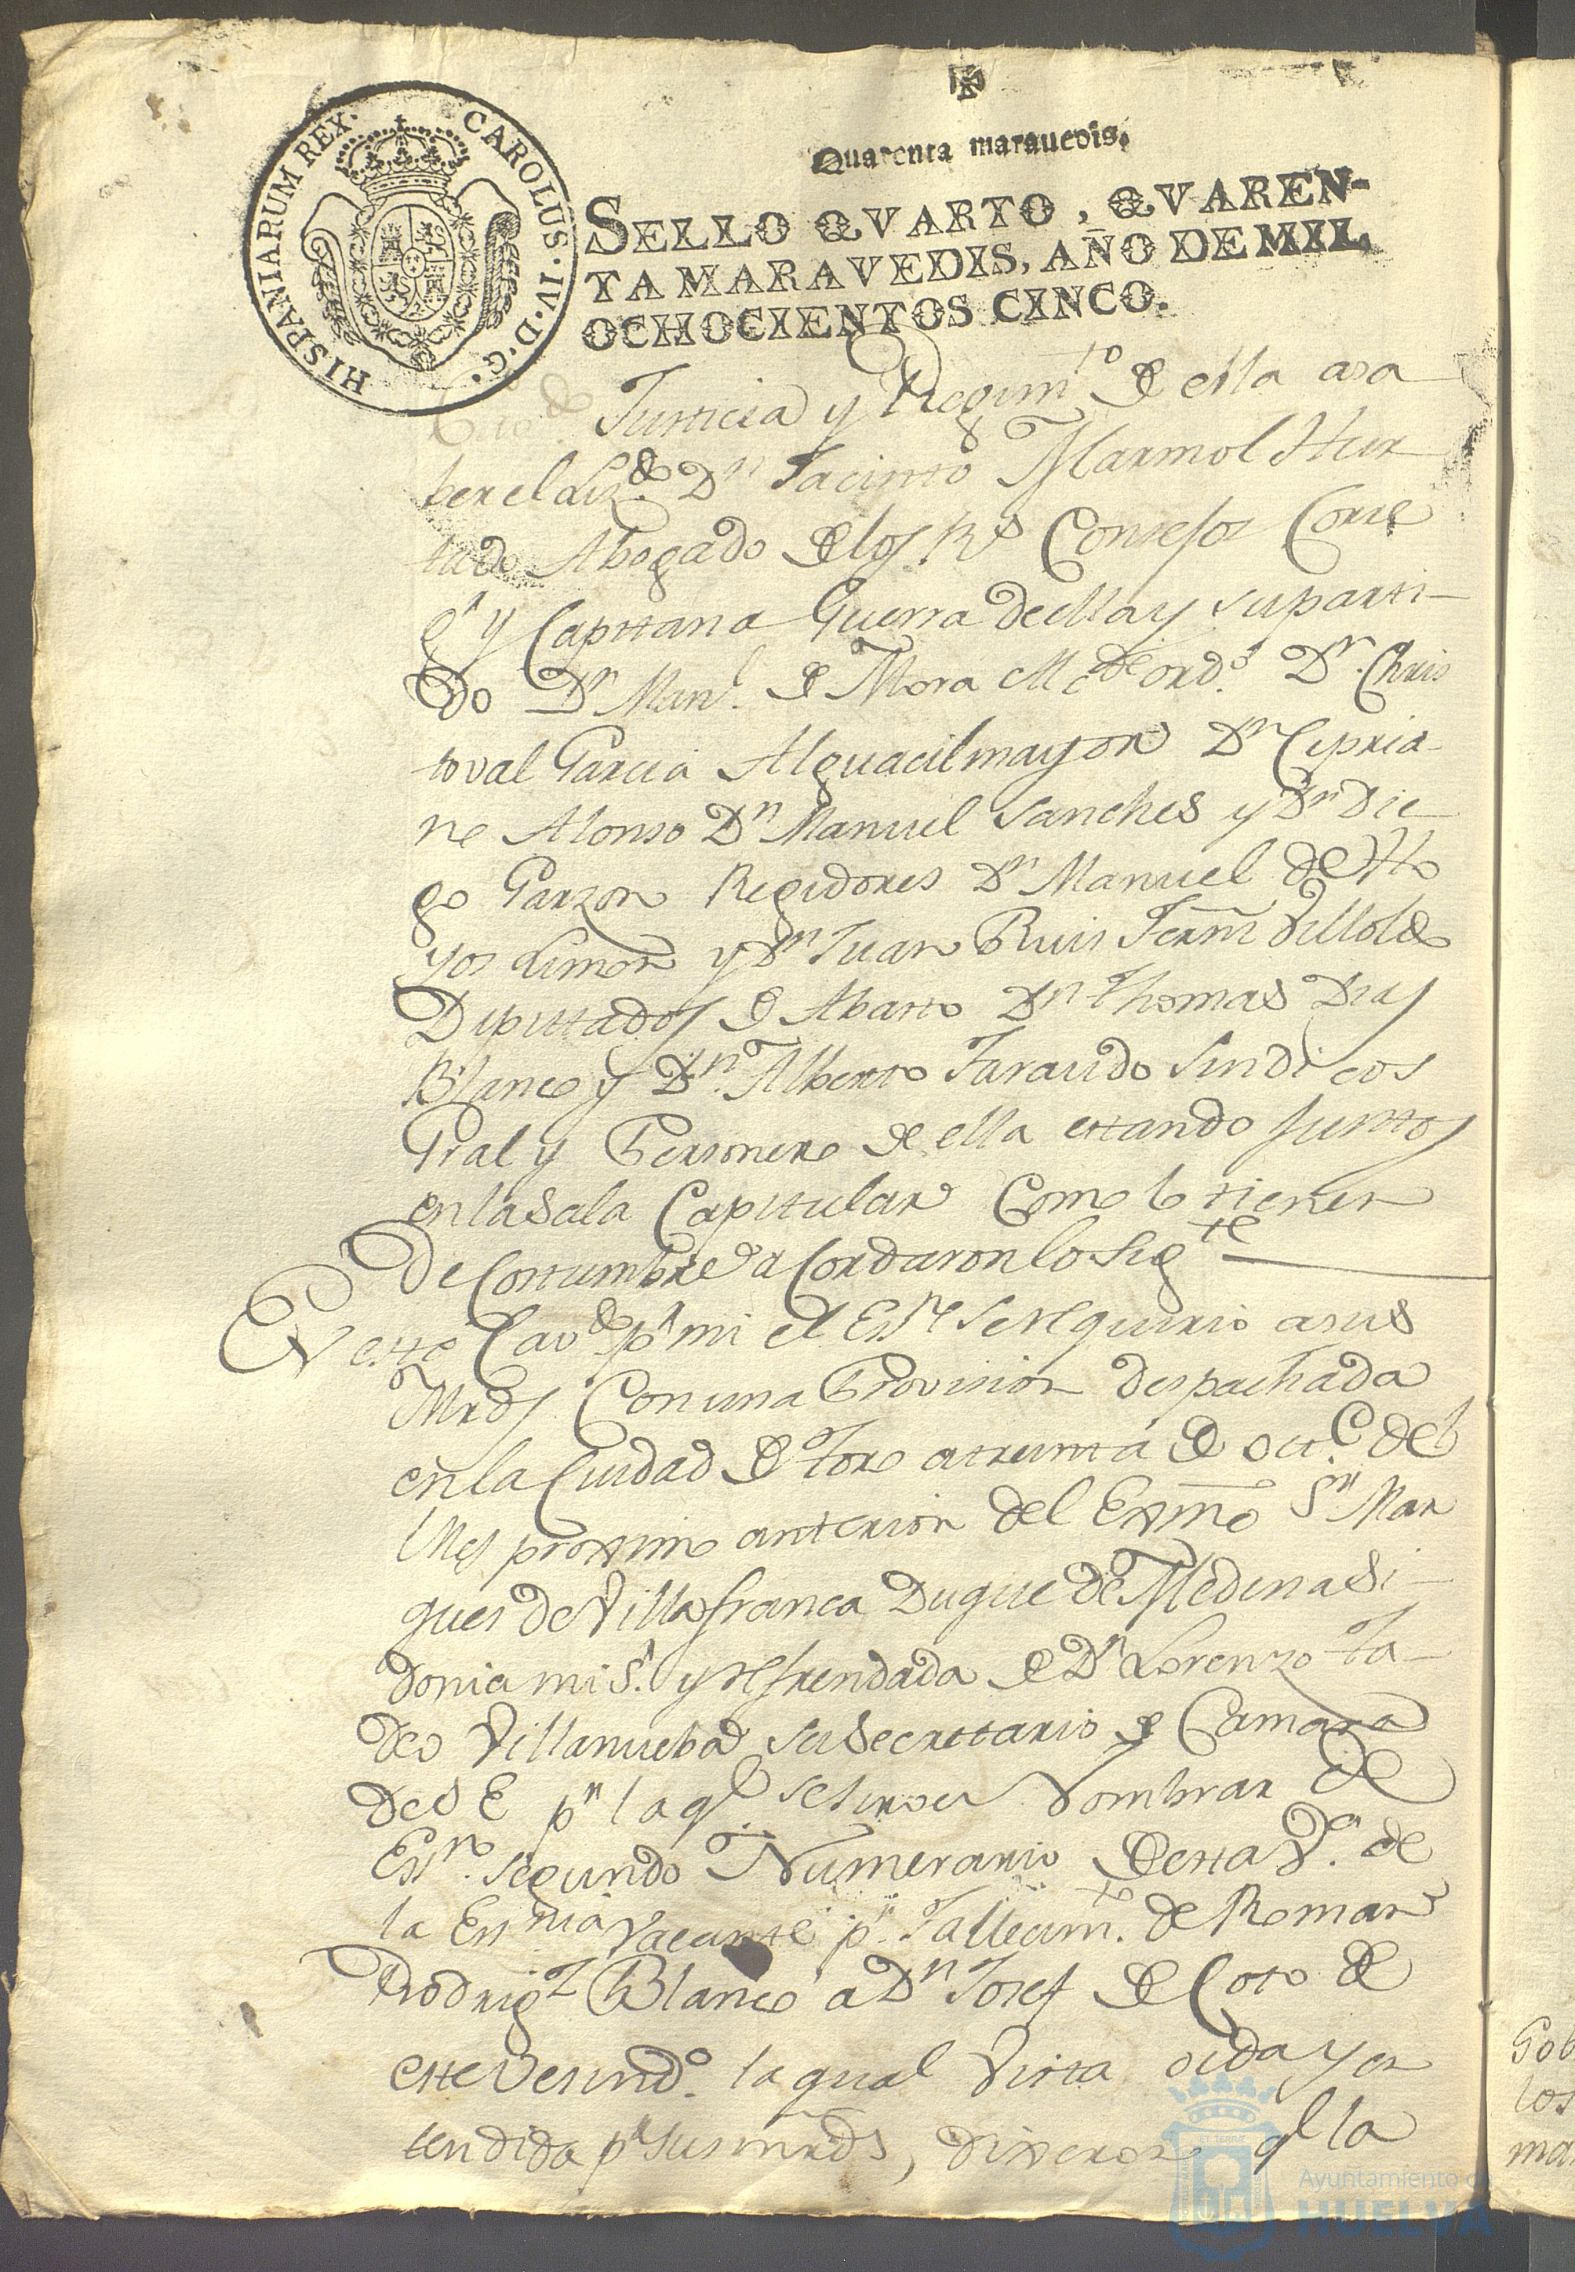 HISPANIARUM REX · CAROLUS · IV · D · G ·
Quarenta marauedis.
SELLO QVARTO, QVAREN-
TA MARAVEDIS, AÑO DE MIL
OCHOCIENTOS CINCO.
Justicia y Regimto de ella asa
ber el Lizdo Dn Jacinto Marmol Hur
tado Abogado de los Rs Consejos Corre
gr y Capitan a Guerra de ella y su parti-
do Dn Manl de Mora Alcde ordo Dn Chris
toval Garcia Alguacil mayor Dn Cipria-
no Alonso Dn Manuel Sanches y Dn Die-
go Garzon Regidores Dn Manuel de Ho
yos Limon y Dn Juan Ruis
Diputtados de Abasto Dn Thomas Dias
Blanco y Dn Alberto Faraudo Sindicos
Gral y Personero de ella estando juntos
en la Sala Capitular Como lo tienen
de Costumbre acordaron lo sigte
En este Cavdo pr mi el Essno se requirio a sus
Mrds Con una Provision despachada
en la Ciudad de Toro a treinta de octe del
Mes proximo anterior del Exmo Sr Mar
ques de Villafranca Duque de Medina Si-
donia mi Sr y refrendada de Dn Lorenzo Ta-
deo Villanueba su Secrettario de Camara
de S E pr la ql se sirve Nombrar de
Essno segundo Numerario de esta Va de
la Essnia vacante pr Fallecimto de Roman
Rodrigz Blanco a Dn Josef de Coto de
este Vesindo la qual vista oida y en
tendida pr sus mrds, dixeron ql la
Gob
los
ma
Ayuntamiento de
HUELVA